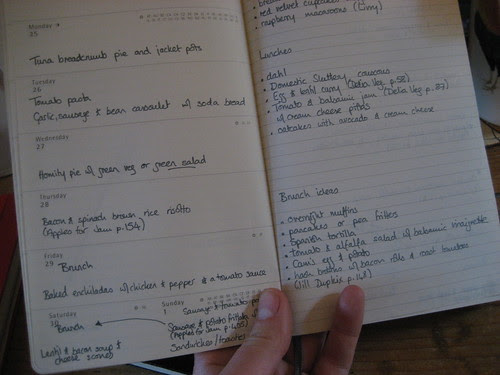 Monday
25
Tuna breadcrumb pie and jacket pots
Tuesday
26
Tomato pasta
Garlic, sausage & bean cassoulet w/ soda bread
Wednesday
27
Homity pie w/ green veg or green salad
Thursday
28
Bacon & spinach brown rice risotto
(Apples for Jam p.154)
Friday
29
Brunch
Baked enchiladas w/ chicken & pepper & a tomato sauce
Saturday
30
Brunch
Lentil & bacon soup &
cheese scones
Sunday
1
Sausage & tomato
Sausage & potato frittata
(Apples for Jam
Sandwiches/toasties
• red velvet cupcakes
• raspberry macaroons
Lunches
• dahl
• Domestic Sluttery couscous
• Egg & lentil curry (Delia Veg p.58)
• Tomato & balsamic jam (Delia Veg p.
w/ cream cheese
• oatcakes with avocado & cream cheese
Brunch ideas
• overnight muffins
• pancakes or pea fritters
• Spanish tortilla
• Tomato & alfalfa salad w/ balsamic vinaigrette
• egg & potato
• hash browns w/ bacon & roast tomatoes